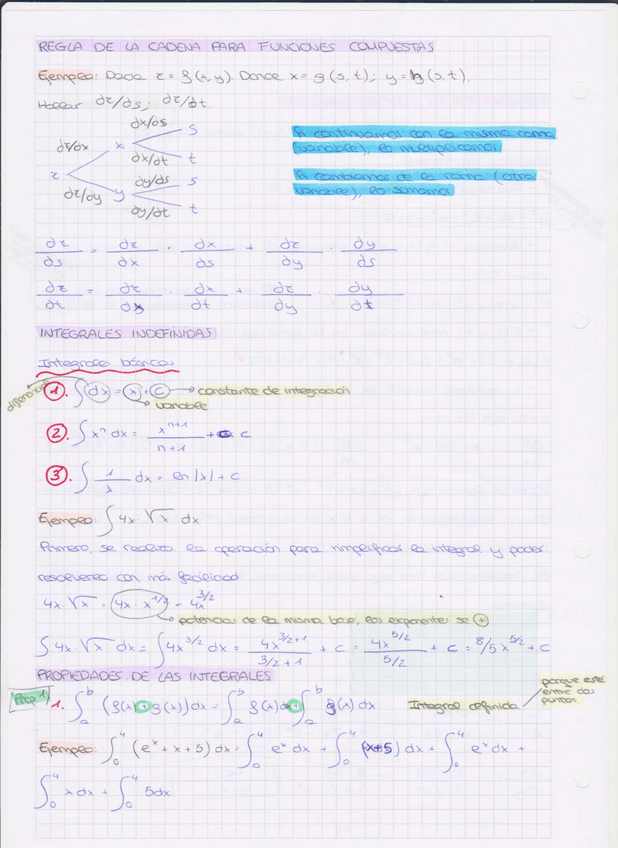 REGLA DE LA CADENA PARA FUNCIONES COMPUESTAS
Ejemplo: Dada z = f(x,y). Donde x = g(s,t); y = h(s,t).
Hallar ∂z/∂s; ∂z/∂t
∂x/∂s s
∂z/∂x x ∂x/∂t t
z
∂z/∂y y ∂y/∂s s
∂y/∂t t
Si continuamos con la misma rama
(variable), lo multiplicamos
Si cambiamos de la rama (otra
variable), lo sumamos
∂z/∂s = ∂z/∂x · ∂x/∂s + ∂z/∂y · ∂y/∂s
∂z/∂t = ∂z/∂x · ∂x/∂t + ∂z/∂y · ∂y/∂t
INTEGRALES INDEFINIDAS
Integrales básicas
diferencial
1. ∫ dx = x + c → constante de integración
variable
2. ∫ x^n dx = x^(n+1)/(n+1) + c
3. ∫ 1/x dx = ln |x| + c
Ejemplo: ∫ 4x · √x dx
Primero, se realiza la operación para simplificar la integral y poder
resolverlo con más facilidad
4x · √x = 4x · x^(1/2) = 4x^(3/2)
potencias de la misma base, los exponentes se +
∫ 4x · √x dx = ∫ 4x^(3/2) dx = 4x^(3/2+1)/(3/2+1) + c = 4x^(5/2)/(5/2) + c = 8/5 x^(5/2) + c
PROPIEDADES DE LAS INTEGRALES
Prop 1 1. ∫_a^b (f(x) + g(x)) dx = ∫_a^b f(x) dx + ∫_a^b g(x) dx Integral definida
porque está
entre dos
puntos.
Ejemplo: ∫_0^4 (e^x + x + 5) dx = ∫_0^4 e^x dx + ∫_0^4 (x+5) dx = ∫_0^4 e^x dx +
∫_0^4 x dx + ∫_0^4 5dx